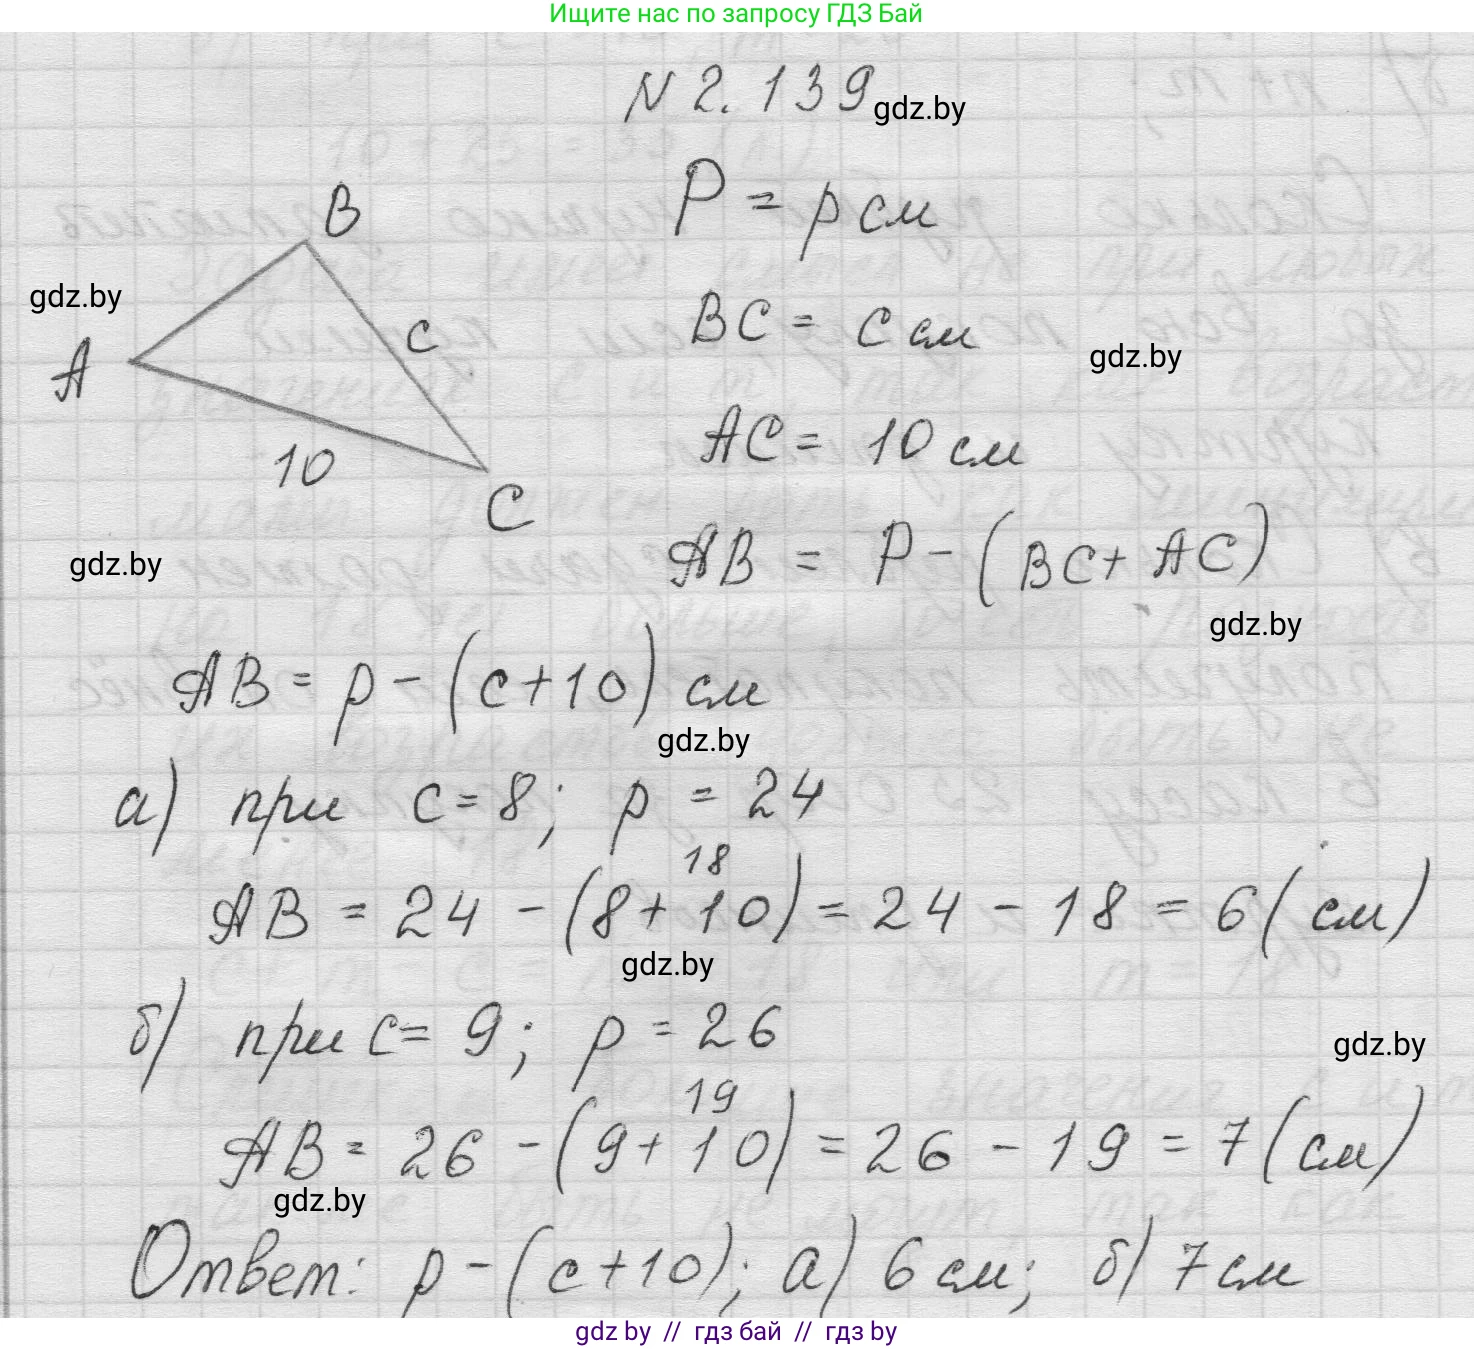 Ищите нас по запросу ГДЗ Бай
N 2.139
gdz.by
P = p см
B
gdz.by
BC = c см
c
gdz.by
A
AC = 10 см
10
C
AB = P - (BC + AC)
gdz.by
gdz.by
AB = p - (c + 10) см
gdz.by
а) при c = 8; p = 24
18
AB = 24 - (8 + 10) = 24 - 18 = 6 (см)
gdz.by
б) при c = 9; p = 26
gdz.by
19
AB = 26 - (9 + 10) = 26 - 19 = 7 (см)
gdz.by
Ответ: p - (c + 10); а) 6 см; б) 7 см
gdz by // гдз бай // гдз by